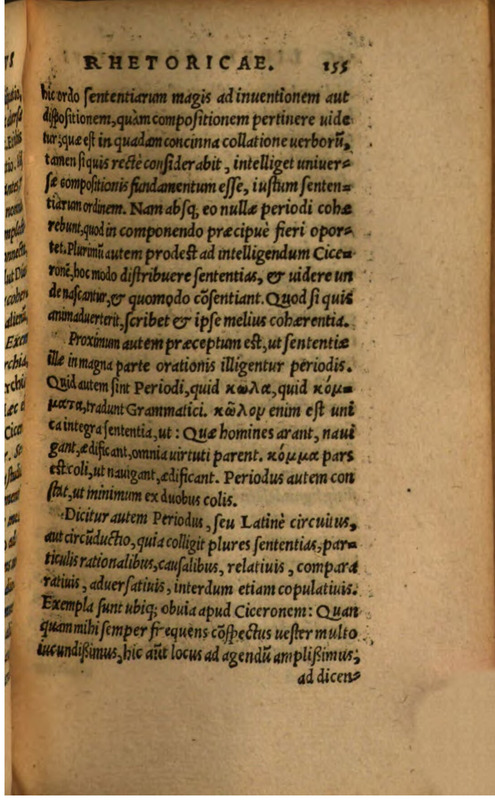 RHETORICAE. 155
hic ordo sententiarum magis ad inuentionem aut
dispositionem, quàm compositionem pertinere uide
tur, quæ est in quadam concinna collatione uerborũ,
tamen si quis rectè considerabit, intelliget uniuer=
sæ compositionis fundamentum esse, iustum senten=
tiarum ordinem. Nam absq; eo nullæ periodi cohæ
rebunt, quod in componendo præcipuè fieri opor=
tet. Plurimũ autem prodest ad intelligendum Cice=
ronẽ, hoc modo distribuere sententias, & uidere un
de nascantur, & quomodo cõsentiant. Quod si quis
animaduerterit, scribet & ipse melius cohærentia.
Proximum autem præceptum est, ut sententiæ
illæ in magna parte orationis illigentur periodis.
Quid autem sint Periodi, quid κῶλα, quid κόμ=
ματα, tradunt Grammatici. κῶλομ enim est uni
ca integra sententia, ut: Quæ homines arant, naui
gant, ædificant, omnia uirtuti parent. κόμμα pars
est coli, ut nauigant, ædificant. Periodus autem con
stat, ut minimum ex duobus colis.
Dicitur autem Periodus, seu Latinè circuitus,
aut circũductio, quia colligit plures sententias, par=
ticulis rationalibus, causalibus, relatiuis, compara
ratiuis, aduersatiuis, interdum etiam copulatiuis.
Exempla sunt ubiq; obuia apud Ciceronem: Quan
quam mihi semper frequens cõspectus uester multo
iucundißimus, hic aũt locus ad agendũ amplißimus,
ad dicen=